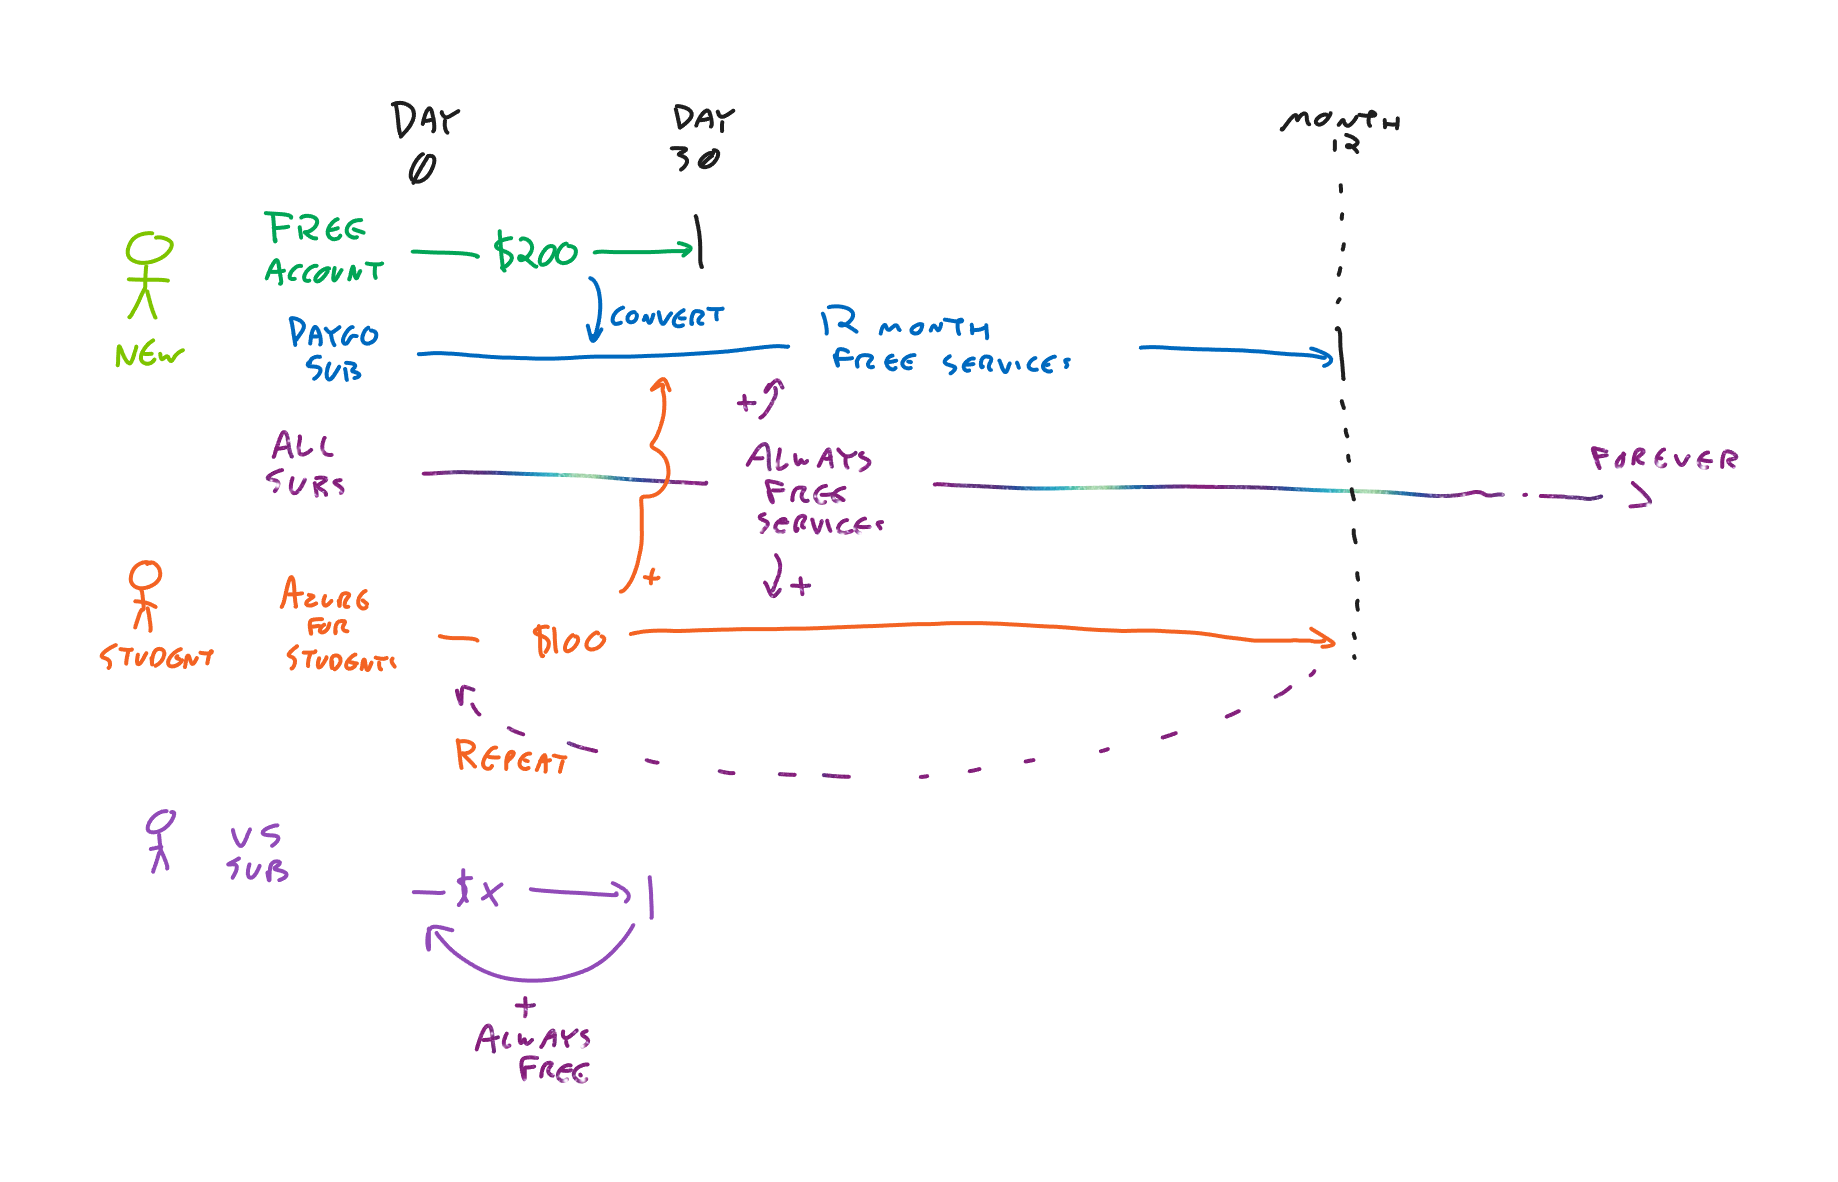 DAY
0
DAY
30
MONTH
12
FREE
ACCOUNT
$200
NEW
CONVERT
PAYGO
SUB
12 MONTH
FREE SERVICES
+
ALL
SUBS
ALWAYS
FREE
SERVICES
FOREVER
+
+
STUDENT
AZURE
FOR
STUDENTS
$100
REPEAT
VS
SUB
$X
+
ALWAYS
FREE